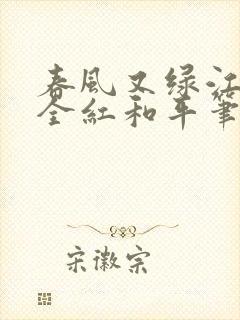 春風又绿江
全紅和平筆
宋徽宗